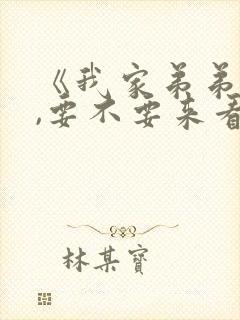 《我家弟弟
,要不要来看
林某寶